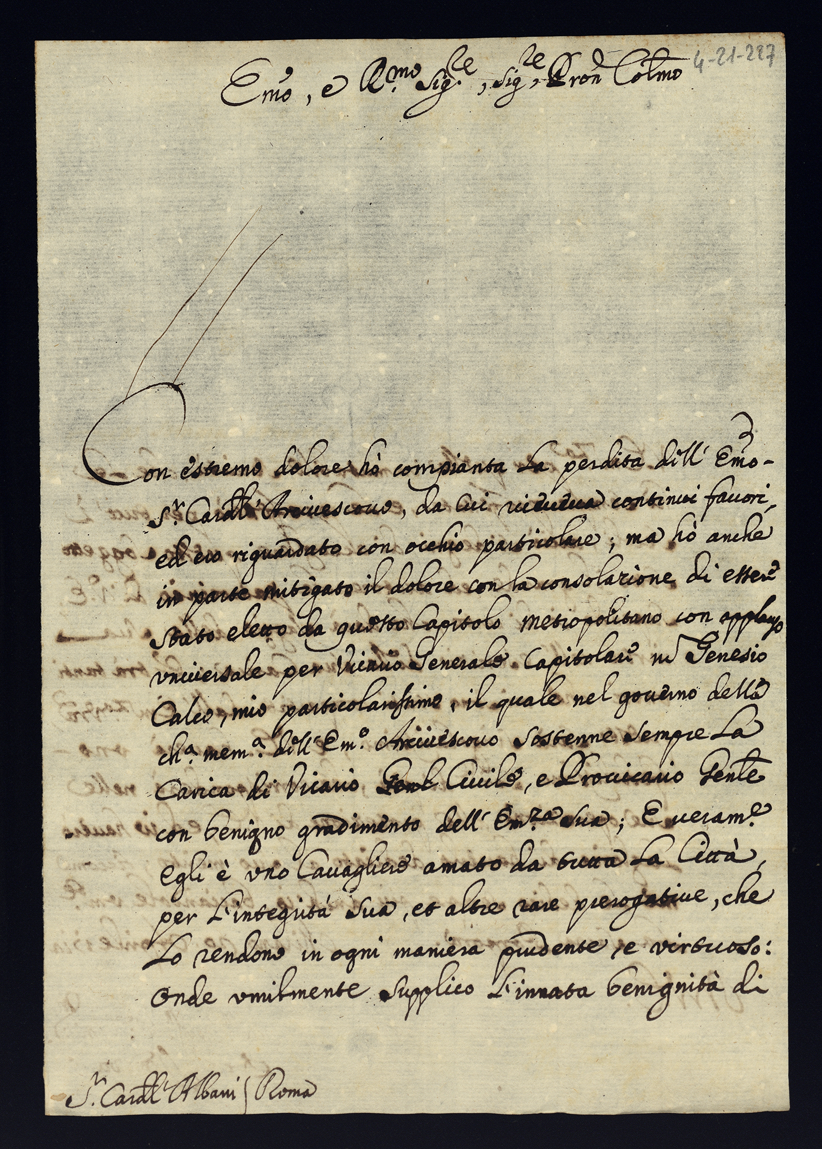 4-21-227
Emo, e Rmo Sigre, Sigre, Pron Colmo
Con estremo dolore hò compianta la perdita dell' Emo
Sr. Cardle Arciuescouo, da cui riceueua continui fauori,
ed ero riguardato con occhio particolare; ma hò anche
in parte mitigato il dolore con la consolazione di essere
stato eletto da questo Capitolo metropolitano con applauso
vniuersale per Vicario Generale Capitolare Genesio
Calco, mio particolarissimo, il quale nel gouerno della
cha. mema. dell' Emo. Arciuescouo sostenne sempre la
Carica di Vicario Genle Ciuile, e Prouicario Genle
con benigno gradimento dell' Emza sua; E ueram.e
egli è vno Cauagliere amato da tutta la Città,
per l'integrità sua, et altre rare prerogatiue, che
lo rendono in ogni maniera prudente, e virtuoso:
Onde vmilmente supplico l'innata benignità di
Sr. Cardle Albani / Roma